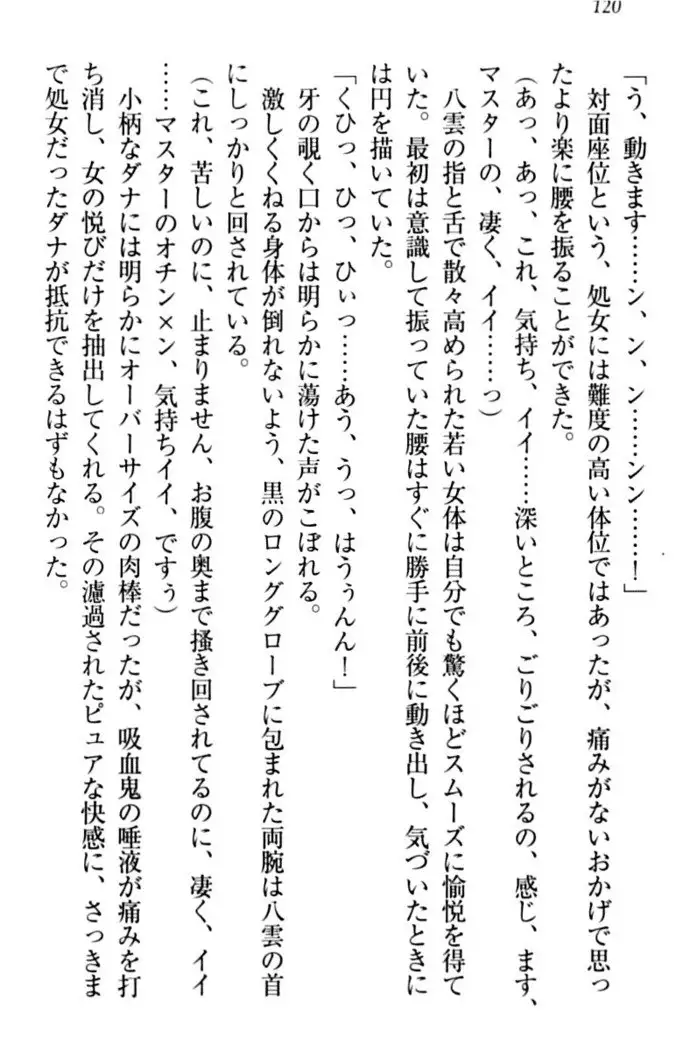 120
「う、動きます……ン、ン、ン……ンン……！」
対面座位という、処女には難度の高い体位ではあったが、痛みがないおかげで思っ
たより楽に腰を振ることができた。
（あっ、あっ、これ、気持ち、イイ……深いところ、ごりごりされるの、感じ、ます、
マスターの、凄く、イイ……っ）
八雲の指と舌で散々高められた若い女体は自分でも驚くほどスムーズに愉悦を得て
いた。最初は意識して振っていた腰はすぐに勝手に前後に動き出し、気づいたときに
は円を描いていた。
「くひっ、ひっ、ひぃっ……あう、うっ、はうぅんん！」
牙の覗く口からは明らかに蕩けた声がこぼれる。
激しくくねる身体が倒れないよう、黒のロンググローブに包まれた両腕は八雲の首
にしっかりと回されている。
（これ、苦しいのに、止まりません、お腹の奥まで掻き回されてるのに、凄く、イイ
……マスターのオチン×ン、気持ちイイ、ですぅ）
小柄なダナには明らかにオーバーサイズの肉棒だったが、吸血鬼の唾液が痛みを打
ち消し、女の悦びだけを抽出してくれる。その濾過されたピュアな快感に、さっきま
で処女だったダナが抵抗できるはずもなかった。